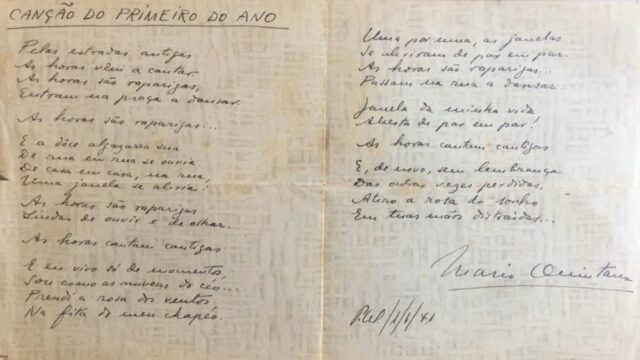 CANÇÃO DO PRIMEIRO DO ANO
Pelas estradas antigas
As horas vêm a cantar.
As horas são raparigas,
Entram na praça a dansar.
As horas são raparigas...
E a dôce algazarra sua
De rua em rua se ouvia.
De casa em casa, na rua,
Uma janela se abria:
As horas são raparigas
Lindas de ouvir e de olhar.
As horas cantam cantigas
E eu vivo só de momentos,
Sou como as nuvens do céo...
Prendi a rosa dos ventos
Na fita do meu chapéo.
Uma por uma, as janelas
Se abriram de par em par.
As horas são raparigas...
Passam na rua a dansar.
Janela da minha vida
Aberta de par em par!
As horas cantam cantigas
E, de novo, sem lembrança
Das outras vezes perdidas,
Atiro a rosa do sonho
Em tuas mãos distraídas...
Mario Quintana
/1/1/41